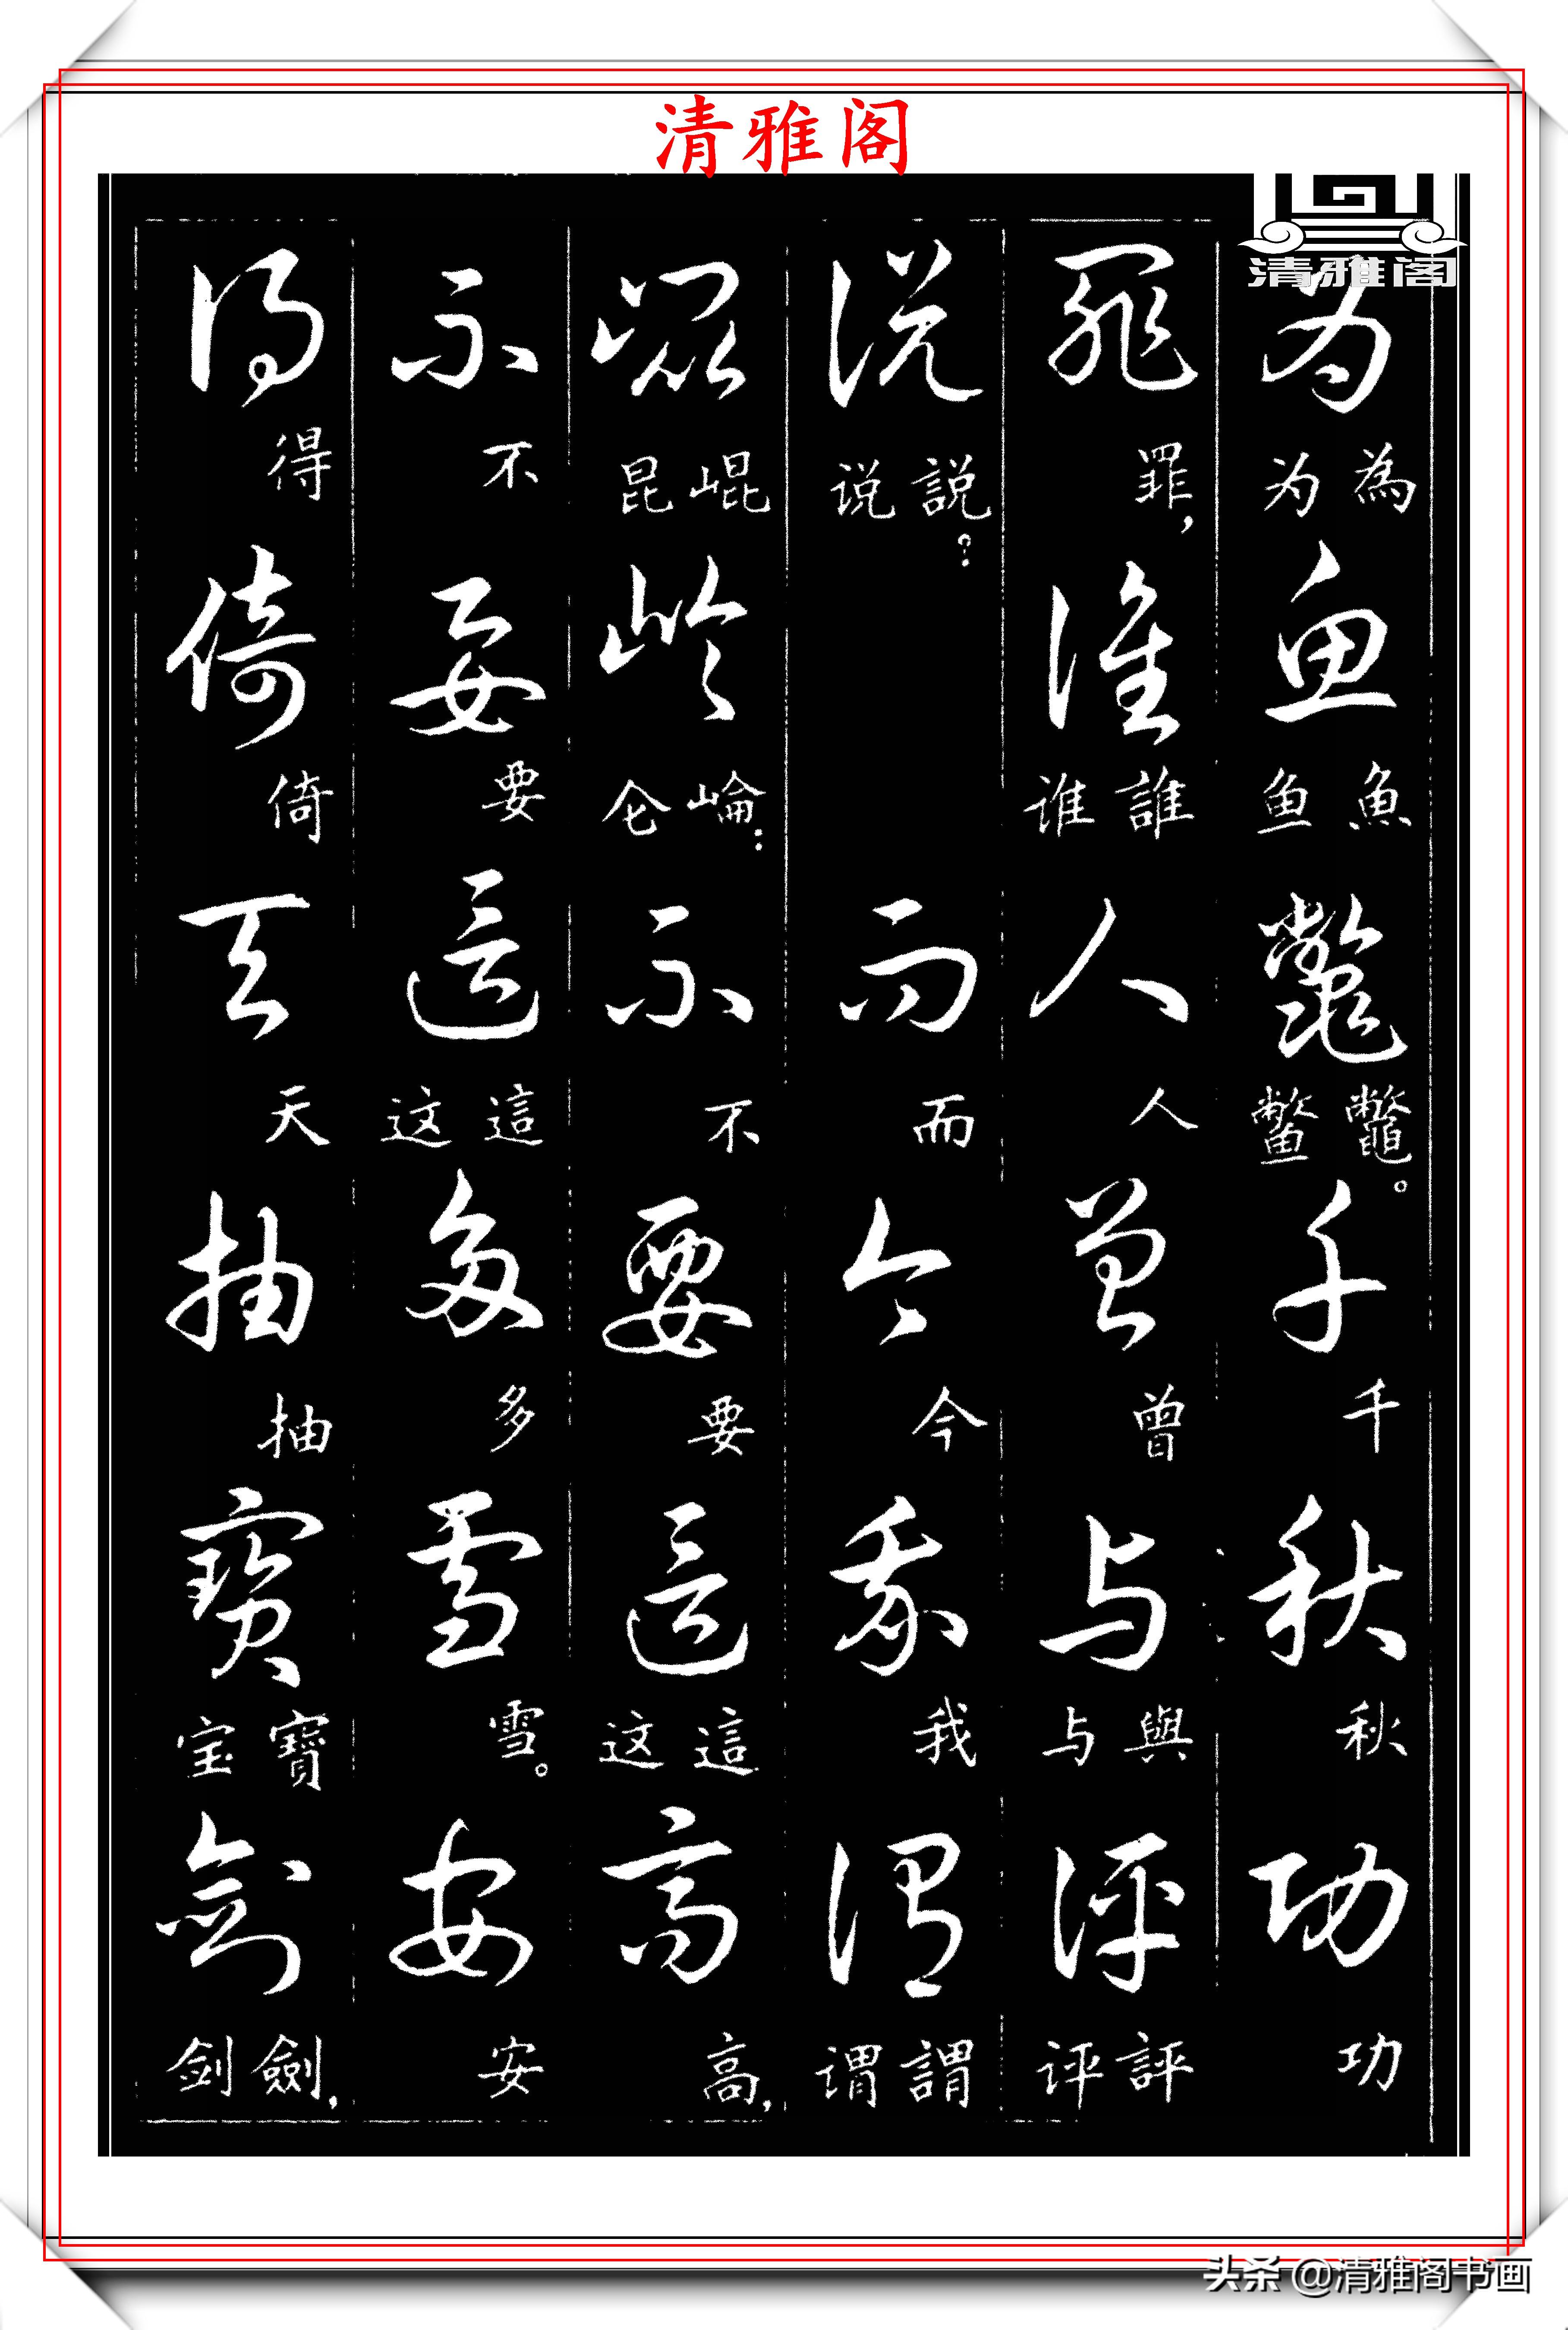 清雅阁
清雅阁
为 為为 鱼 魚鱼 鼈 鼈鳖。 千 千 秋 秋 功 功
罪 罪， 谁 誰谁 人 人 曾 曾 与 與与 评 評评
说 説说？ 而 而 今 今 我 我 谓 謂谓
崐 崐昆 崘 崘仑： 不 不 要 要 這 這这 高 高，
不 不 要 要 這 這这 多 多 雪 雪。 安 安
得 得 倚 倚 天 天 抽 抽 寳 寶宝 剑 劍剑，
头条 @清雅阁书画